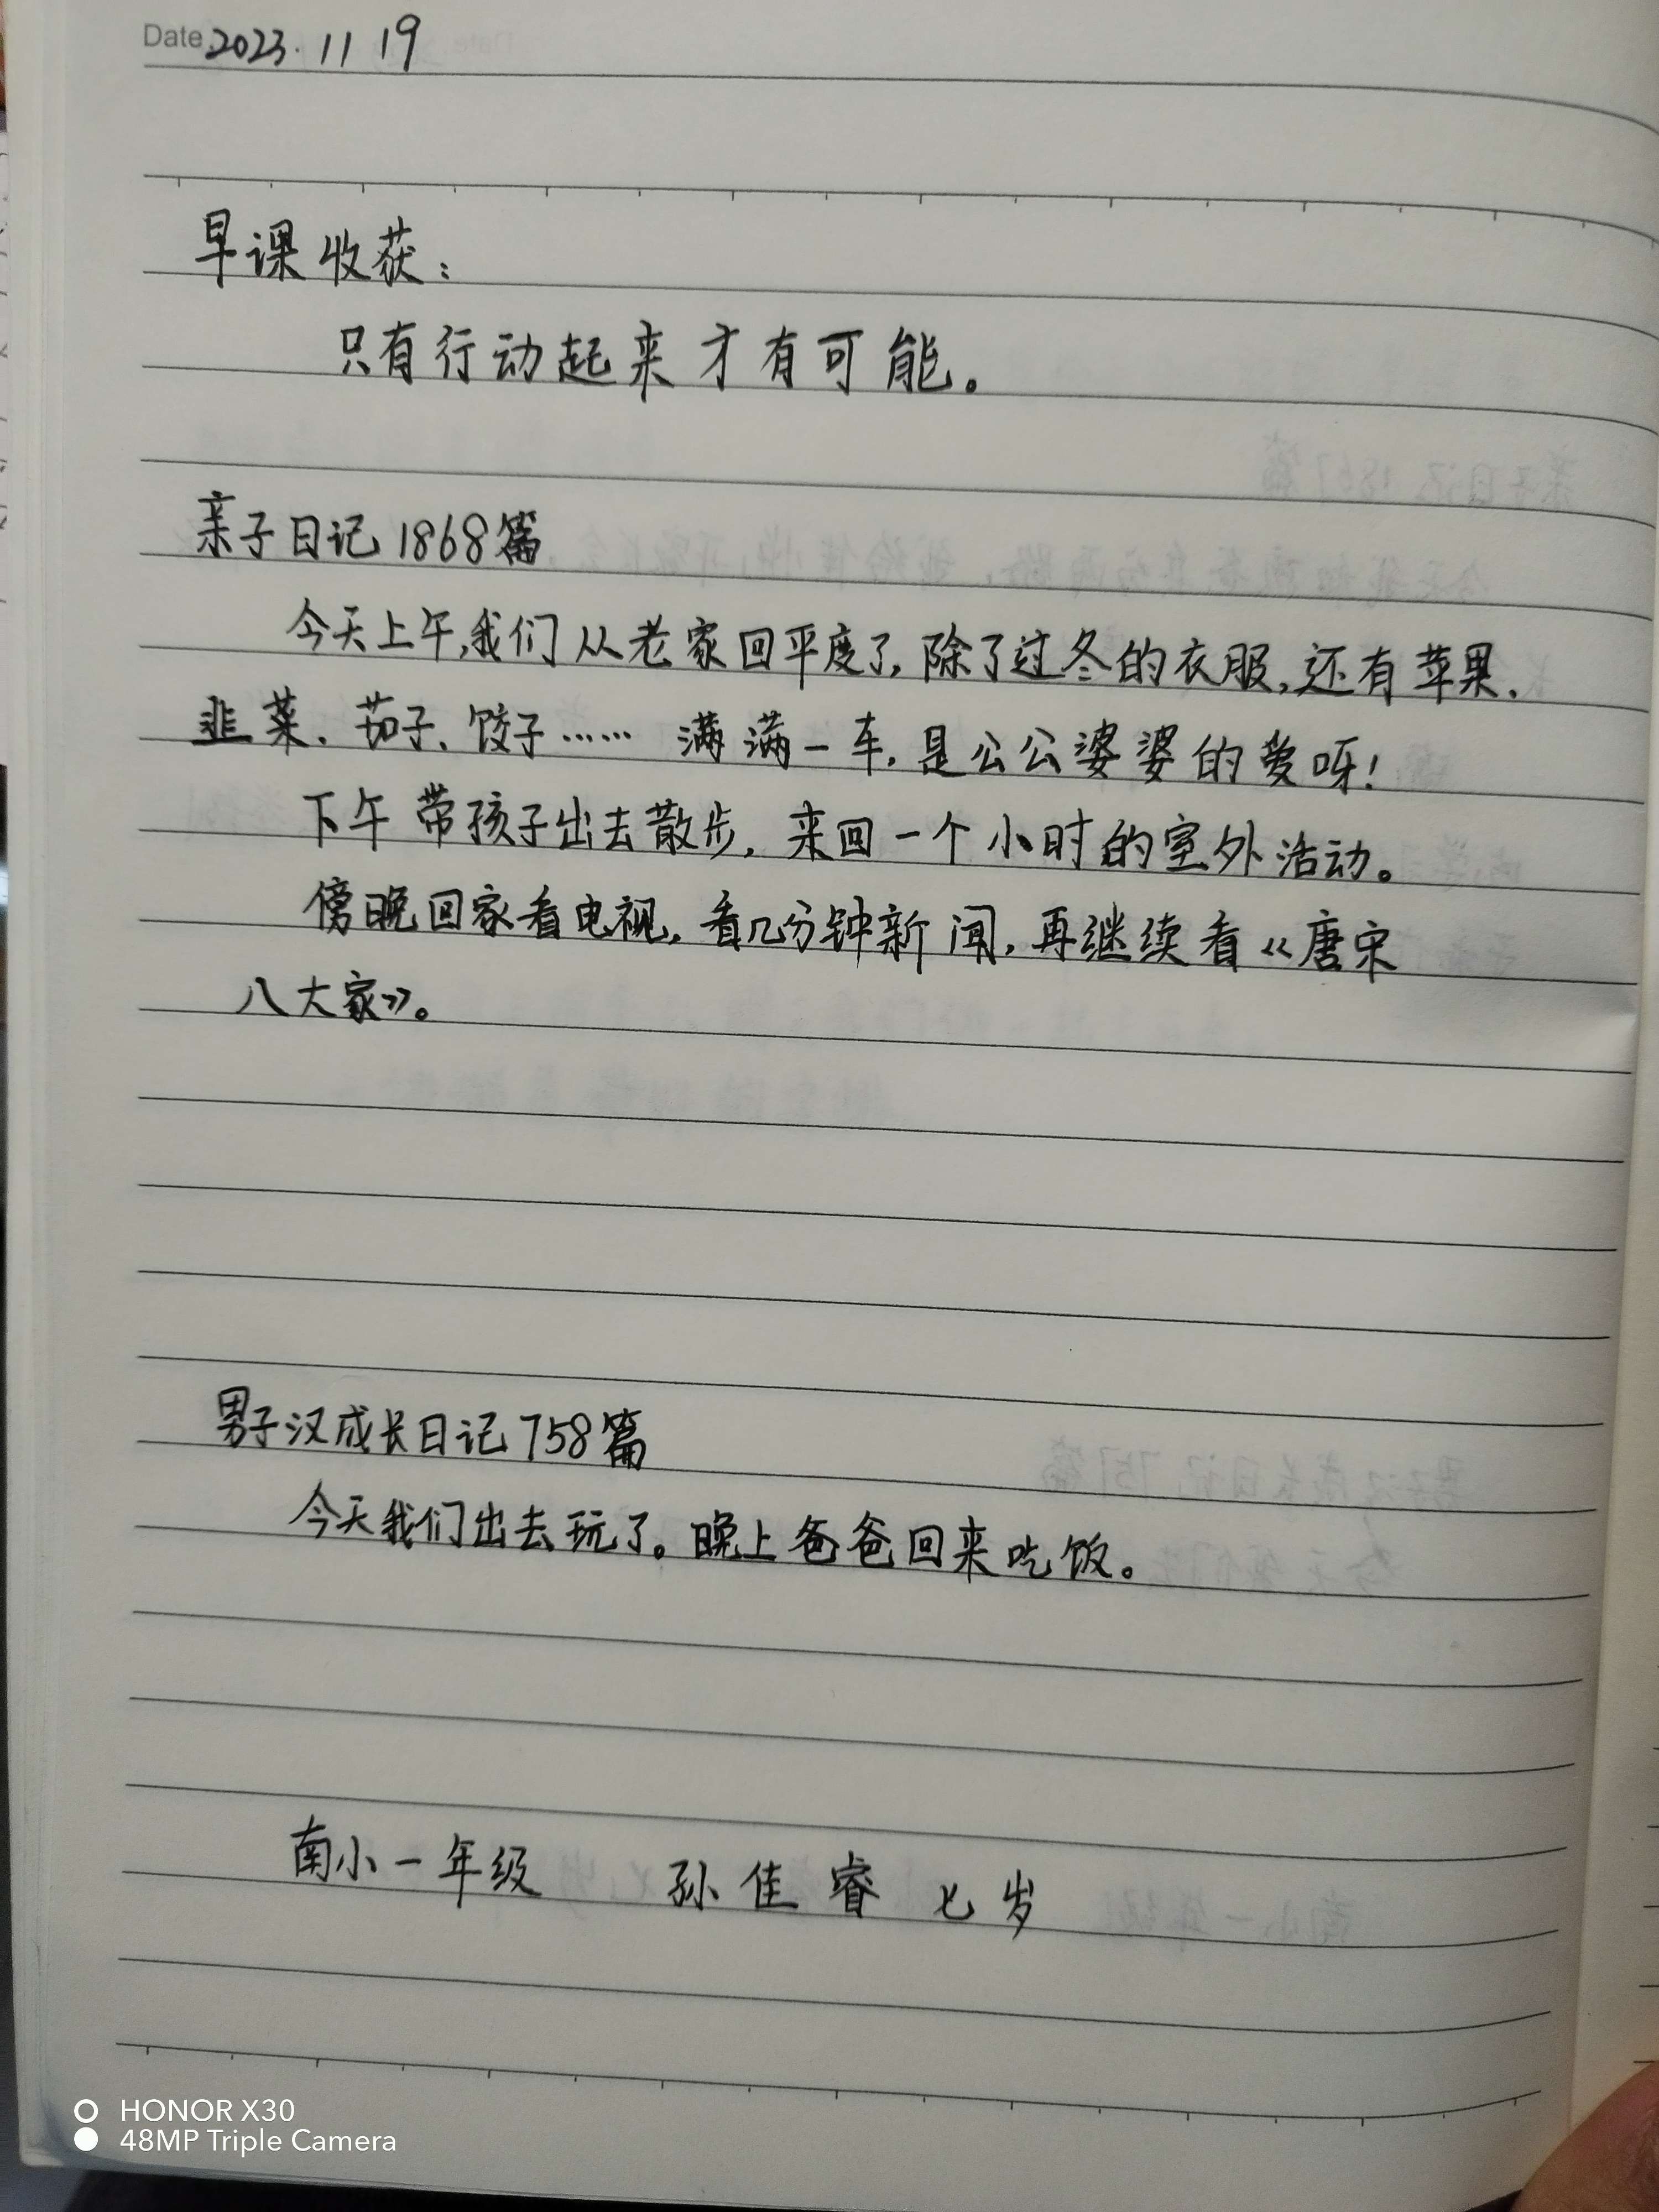 Date 2023. 11 19
早课收获：
只有行动起来才有可能。
亲子日记1868篇
今天上午,我们从老家回平度了,除了过冬的衣服,还有苹果、
韭菜、茄子、饺子…… 满满一车,是公公婆婆的爱呀!
下午带孩子出去散步,来回一个小时的室外活动。
傍晚回家看电视,看几分钟新闻,再继续看《唐宋
八大家》。
男子汉成长日记758篇
今天我们出去玩了。晚上爸爸回来吃饭。
南小一年级 孙佳睿 七岁
HONOR X30
48MP Triple Camera